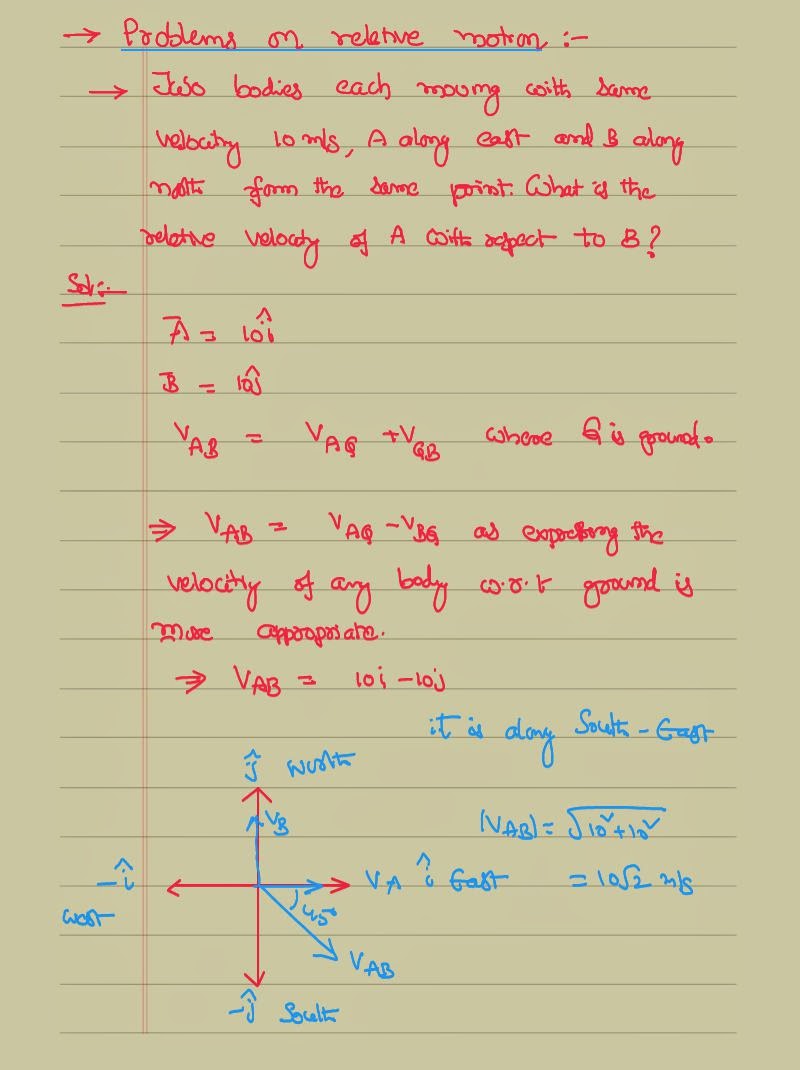 → Problems on relative motion :-
→ Two bodies each moving with same
velocity 10 m/s, A along east and B along
north from the same point. What is the
relative velocity of A with respect to B?
Sol:-
A̅ = 10î
B̅ = 10ĵ
V_AB = V_AG + V_GB where G is ground.
⇒ V_AB = V_AG - V_BG as expressing the
velocity of any body w.r.t ground is
more appropriate.
⇒ V_AB = 10i - 10j
it is along South - East
ĵ North
V_B
|V_AB| = √10²+10²
-î
V_A î East
= 10√2 m/s
west
45°
V_AB
-ĵ South